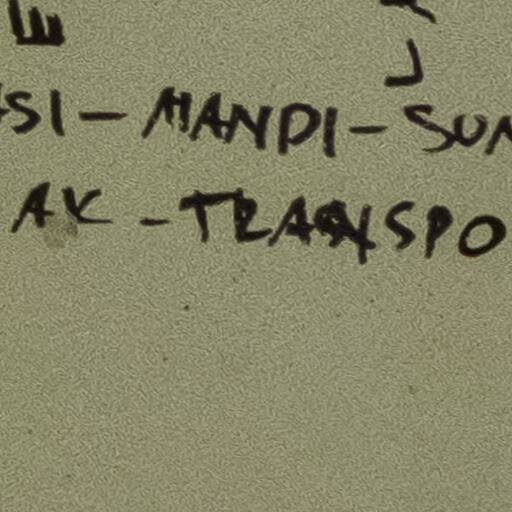 SI - MANDI - SUN
AK - TRANSPO